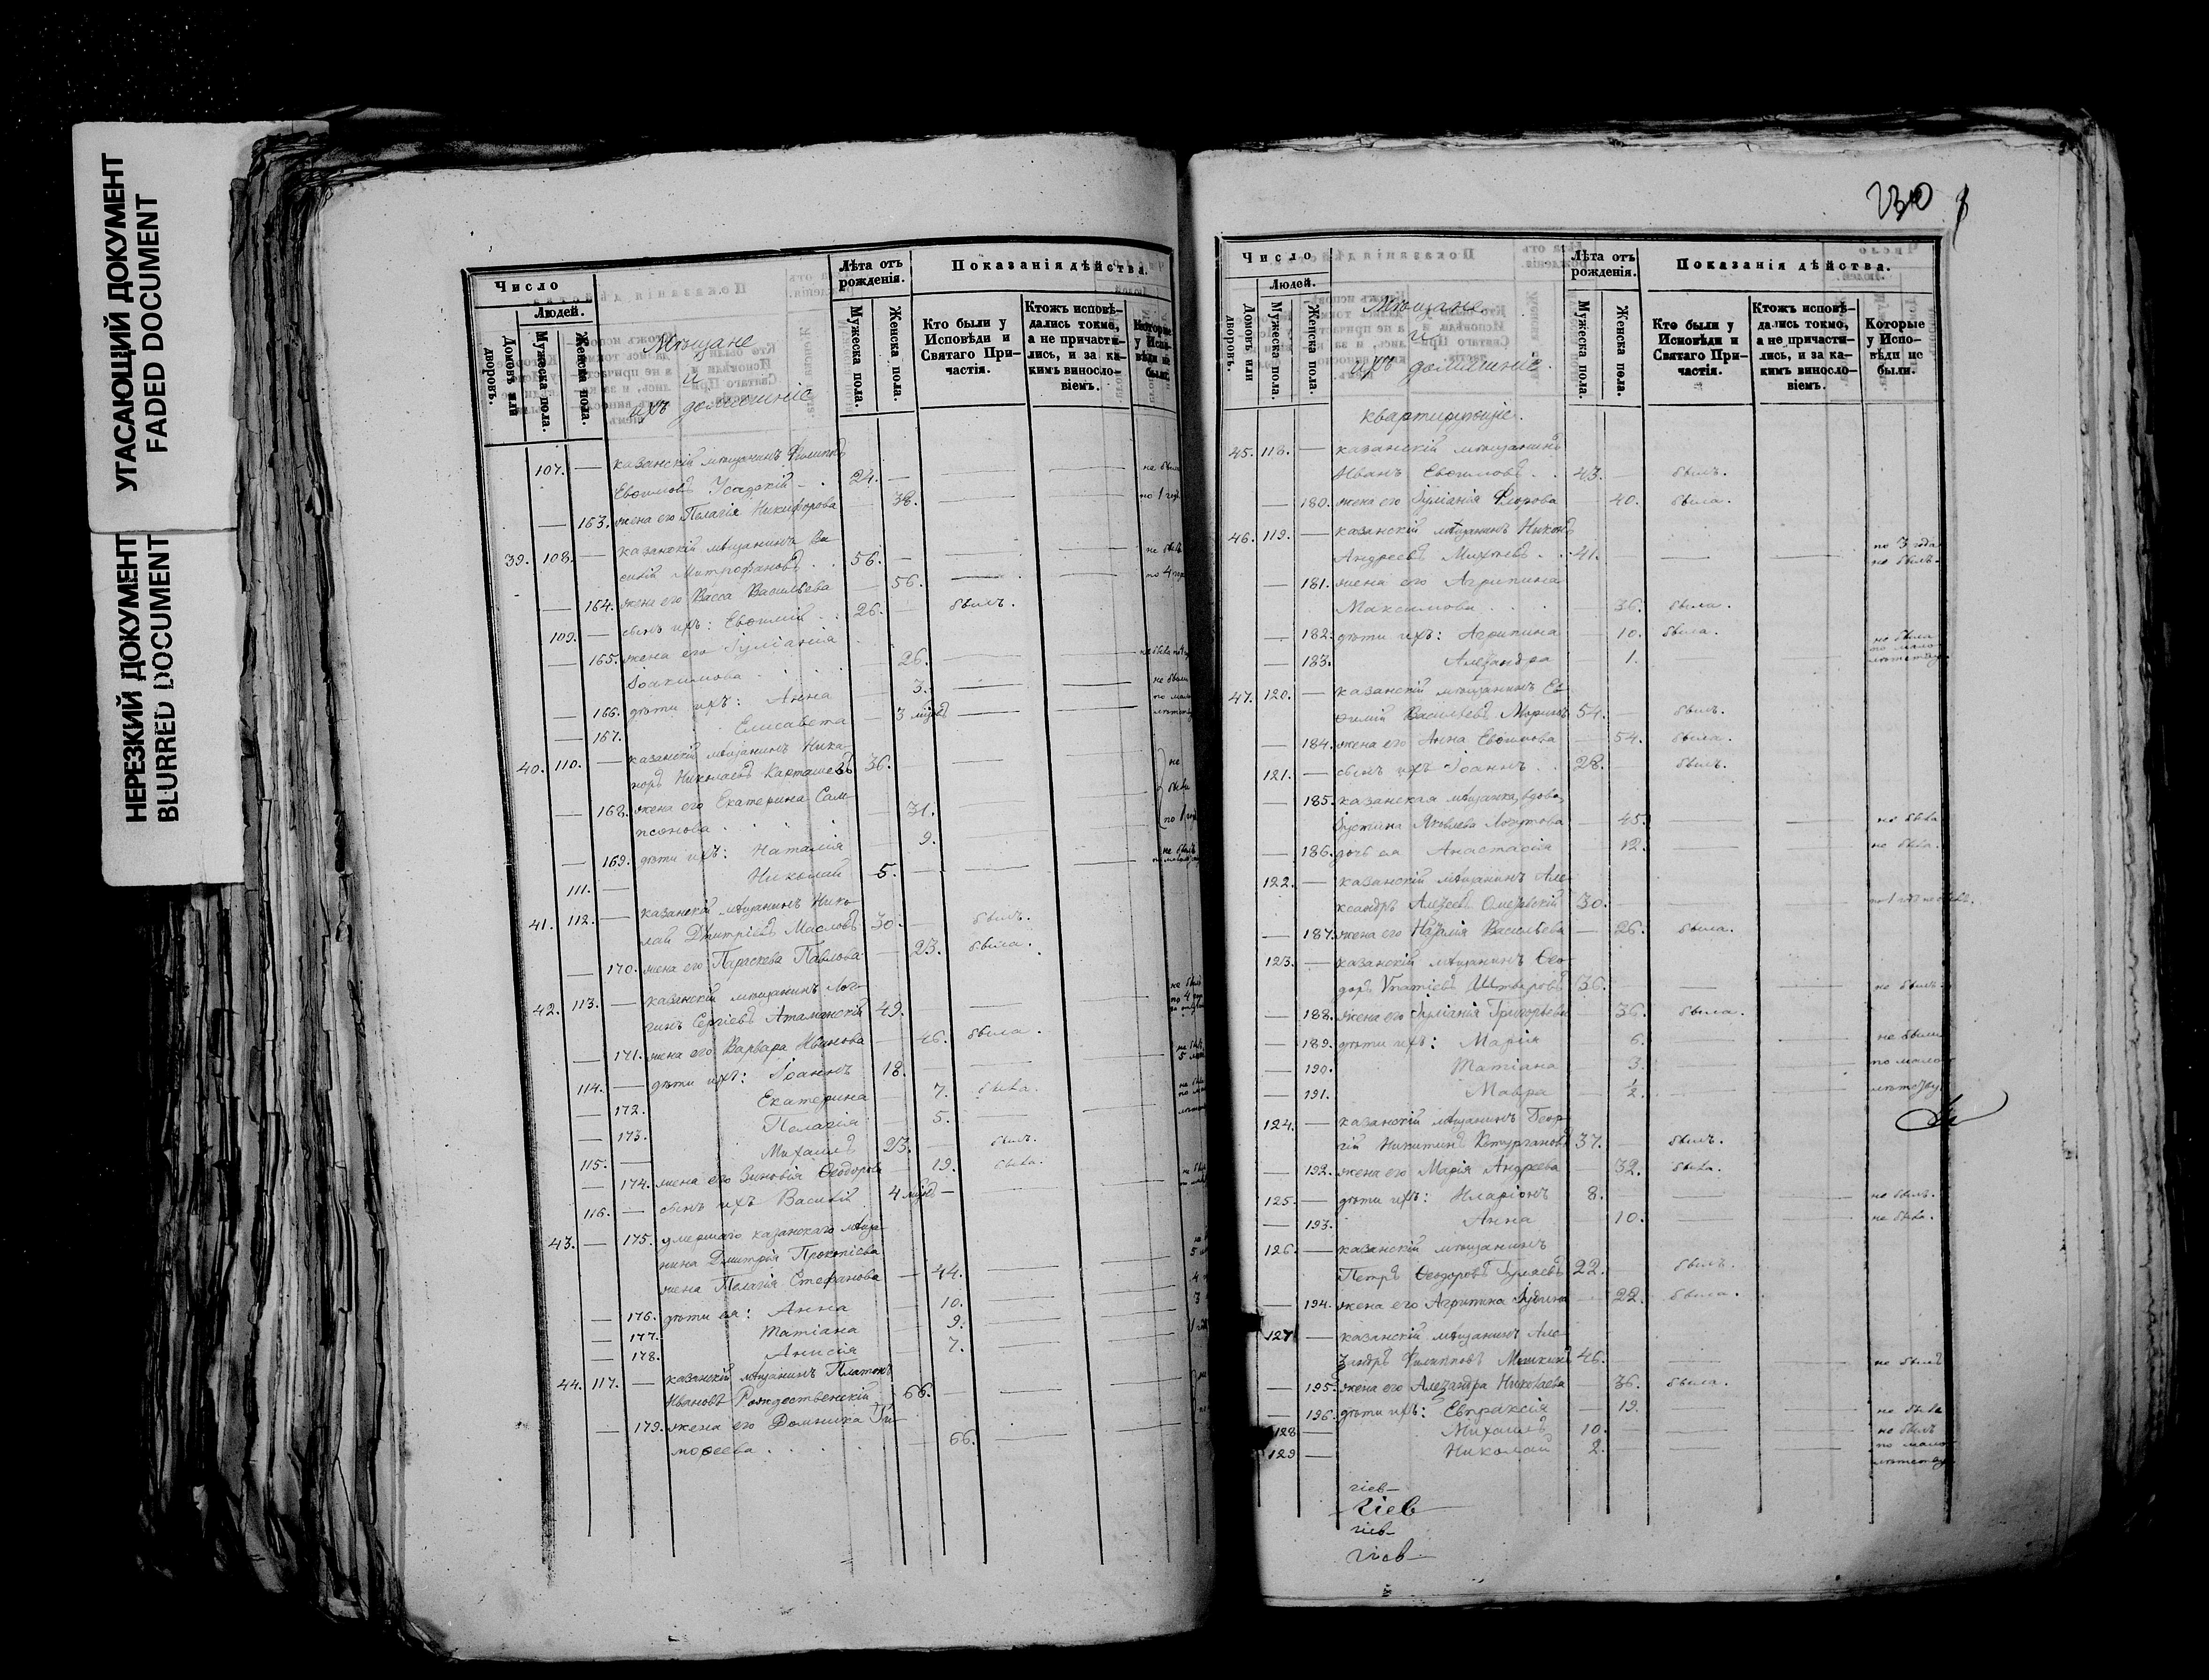 УГАСАЮЩИЙ ДОКУМЕНТ
FADED DOCUMENT
НЕРЕЗКИЙ ДОКУМЕНТ
BLURRED DOCUMENT
Число
Людей.
Домовъ или дворовъ.
Мужеска пола.
Женска пола.
Мѣщане
и
ихъ домашніе
Лѣта отъ рожденія.
Мужеска пола.
Женска пола.
Показанія дѣйства.
Кто были у Исповѣди и Святаго Причастія.
Ктожъ исповѣдались токмо, а не причастились, и за какимъ винословіемъ.
Которые у Исповѣди не были.
107. — казанскій мѣщанинъ Филиппъ
Евѳимовъ Усадскій 24. — не былъ
— 163. жена его Пелагія Никифорова 38. по 1 году
39. 108. — казанскій мѣщанинъ Ва-
силій Митрофановъ . . 56. — не былъ
— 164. жена его Васса Васильева — 56. по 4 год
109. — сынъ ихъ: Евѳимій . . 26. — былъ.
— 165. жена его Іуліанія
Іоакимова . . . 26. не была
— 166. дѣти ихъ: Анна 3. не были
— 167. Елисавета — 3 мѣсяц
40. 110. — казанскій мѣщанинъ Ника-
норъ Николаевъ Карташевъ 36. не
— 168. жена его Екатерина Сам- были
псонова . . . 31. по 1 году
— 169. дѣти ихъ: Наталія 9.
111. — Николай 5. —
41. 112. — казанскій мѣщанинъ Нико-
лай Дмитріевъ Масловъ 30. — былъ.
— 170. жена его Параскева Павлова — 23. была.
42. 113. — казанскій мѣщанинъ Лог-
гинъ Сергіевъ Атаманскій 49. не былъ
— 171. жена его Варвара Иванова — 46. была.
114. — дѣти ихъ: Іоаннъ 18. —
— 172. Екатерина — 7. была.
— 173. Пелагія — 5.
115. — Михаилъ 23. — былъ.
— 174. жена его Зиновія Ѳеодорова — 19. была.
116. — сынъ ихъ Василій 4 мѣсяц —
43. — 175. умершаго казанскаго мѣща-
нина Дмитрія Прокопіева
жена Пелагія Стефанова — 44.
— 176. дѣти ея: Анна — 10.
— 177. Татіана — 9.
— 178. Анисія — 7.
44. 117. — казанскій мѣщанинъ Платонъ
Ивановъ Рождественскій 66. —
— 179. жена его Домника Ти-
моѳеева . . . . — 66.
230
Число
Людей.
Домовъ или дворовъ.
Мужеска пола.
Женска пола.
Мѣщане
и
ихъ домашніе.
Лѣта отъ рожденія.
Мужеска пола.
Женска пола.
Показанія дѣйства.
Кто были у Исповѣди и Святаго Причастія.
Ктожъ исповѣдались токмо, а не причастились, и за какимъ винословіемъ.
Которые у Исповѣди не были.
квартирующіе.
45. 118. — казанскій мѣщанинъ
Иванъ Евѳимовъ . . 43. былъ.
— 180. жена его Іуліанія Флорова — 40. была.
46. 119. — казанскій мѣщанинъ Никонъ
Андреевъ . . 41. — по 3 года не былъ.
— 181. жена его Агрипина
Максимова . . . 36. была.
— 182. дѣти ихъ: Агрипина — 10. была.
— 183. Александра — 1. не была по малолѣтству
47. 120. — казанскій мѣщанинъ Ев-
ѳимій Васильевъ 54. — былъ.
— 184. жена его Анна Евѳимова — 54. была.
121. — сынъ ихъ Іоаннъ . . 28. — былъ.
— 185. казанская мѣщанка, вдова,
Іустина Яковлева — 45. не была
— 186. дочь ея Анастасія — 12. не была.
122. — казанскій мѣщанинъ Але-
ксандръ Алексеевъ 30.
— 187. жена его Наталія Васильева — 26. была.
123. — казанскій мѣщанинъ Ѳео-
доръ Игнатіевъ 36. — не былъ.
— 188. жена его Іуліанія Григорьева — 36. была.
— 189. дѣти ихъ: Марія 6. не были
— 190. Татіана 3. по мало-
— 191. Мавра ½. лѣтству
124. — казанскій мѣщанинъ Геор-
гій Никитинъ 37. — былъ.
— 192. жена его Марія Андреева — 32. была.
125. — дѣти ихъ: Иларіонъ 8. не былъ.
— 193. Анна — 10. не была.
126. — казанскій мѣщанинъ
Петръ Ѳеодоровъ 22. — былъ.
— 194. жена его Агрипина — 22. была.
127. — казанскій мѣщанинъ Але-
ксандръ Филипповъ 46. — не былъ
— 195. жена его Александра Николаева — 36. была.
— 196. дѣти ихъ: Евпраксія — 19. не была
128 — Михаилъ 10. не былъ
129 — Николай 2. по мало-
лѣтству
гіев
гіев
гіев
гіев